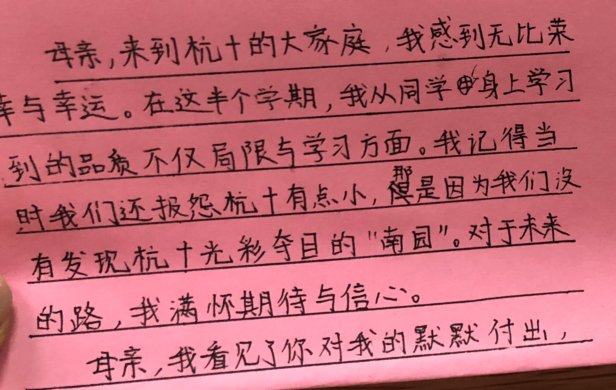 母亲,来到杭十的大家庭,我感到无比荣
幸与幸运。在这半个学期,我从同学身上学习
到的品质不仅局限与学习方面。我记得当
时我们还报怨杭十有点小,那是因为我们没
有发现杭十光彩夺目的“南园”。对于未来
的路,我满怀期待与信心。
母亲,我看见了你对我的默默付出,